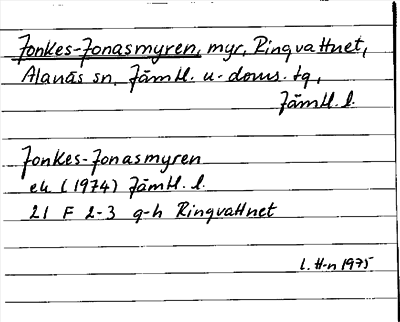 Jonkes-Jonasmyren, myr, Ringvattnet,
Alanäs sn, Jämtl. n. doms. tg,
Jämtl. l.
Jonkes-Jonasmyren
ek (1974) Jämtl. l.
21 F 2-3 g-h Ringvattnet
l. H-n 1975